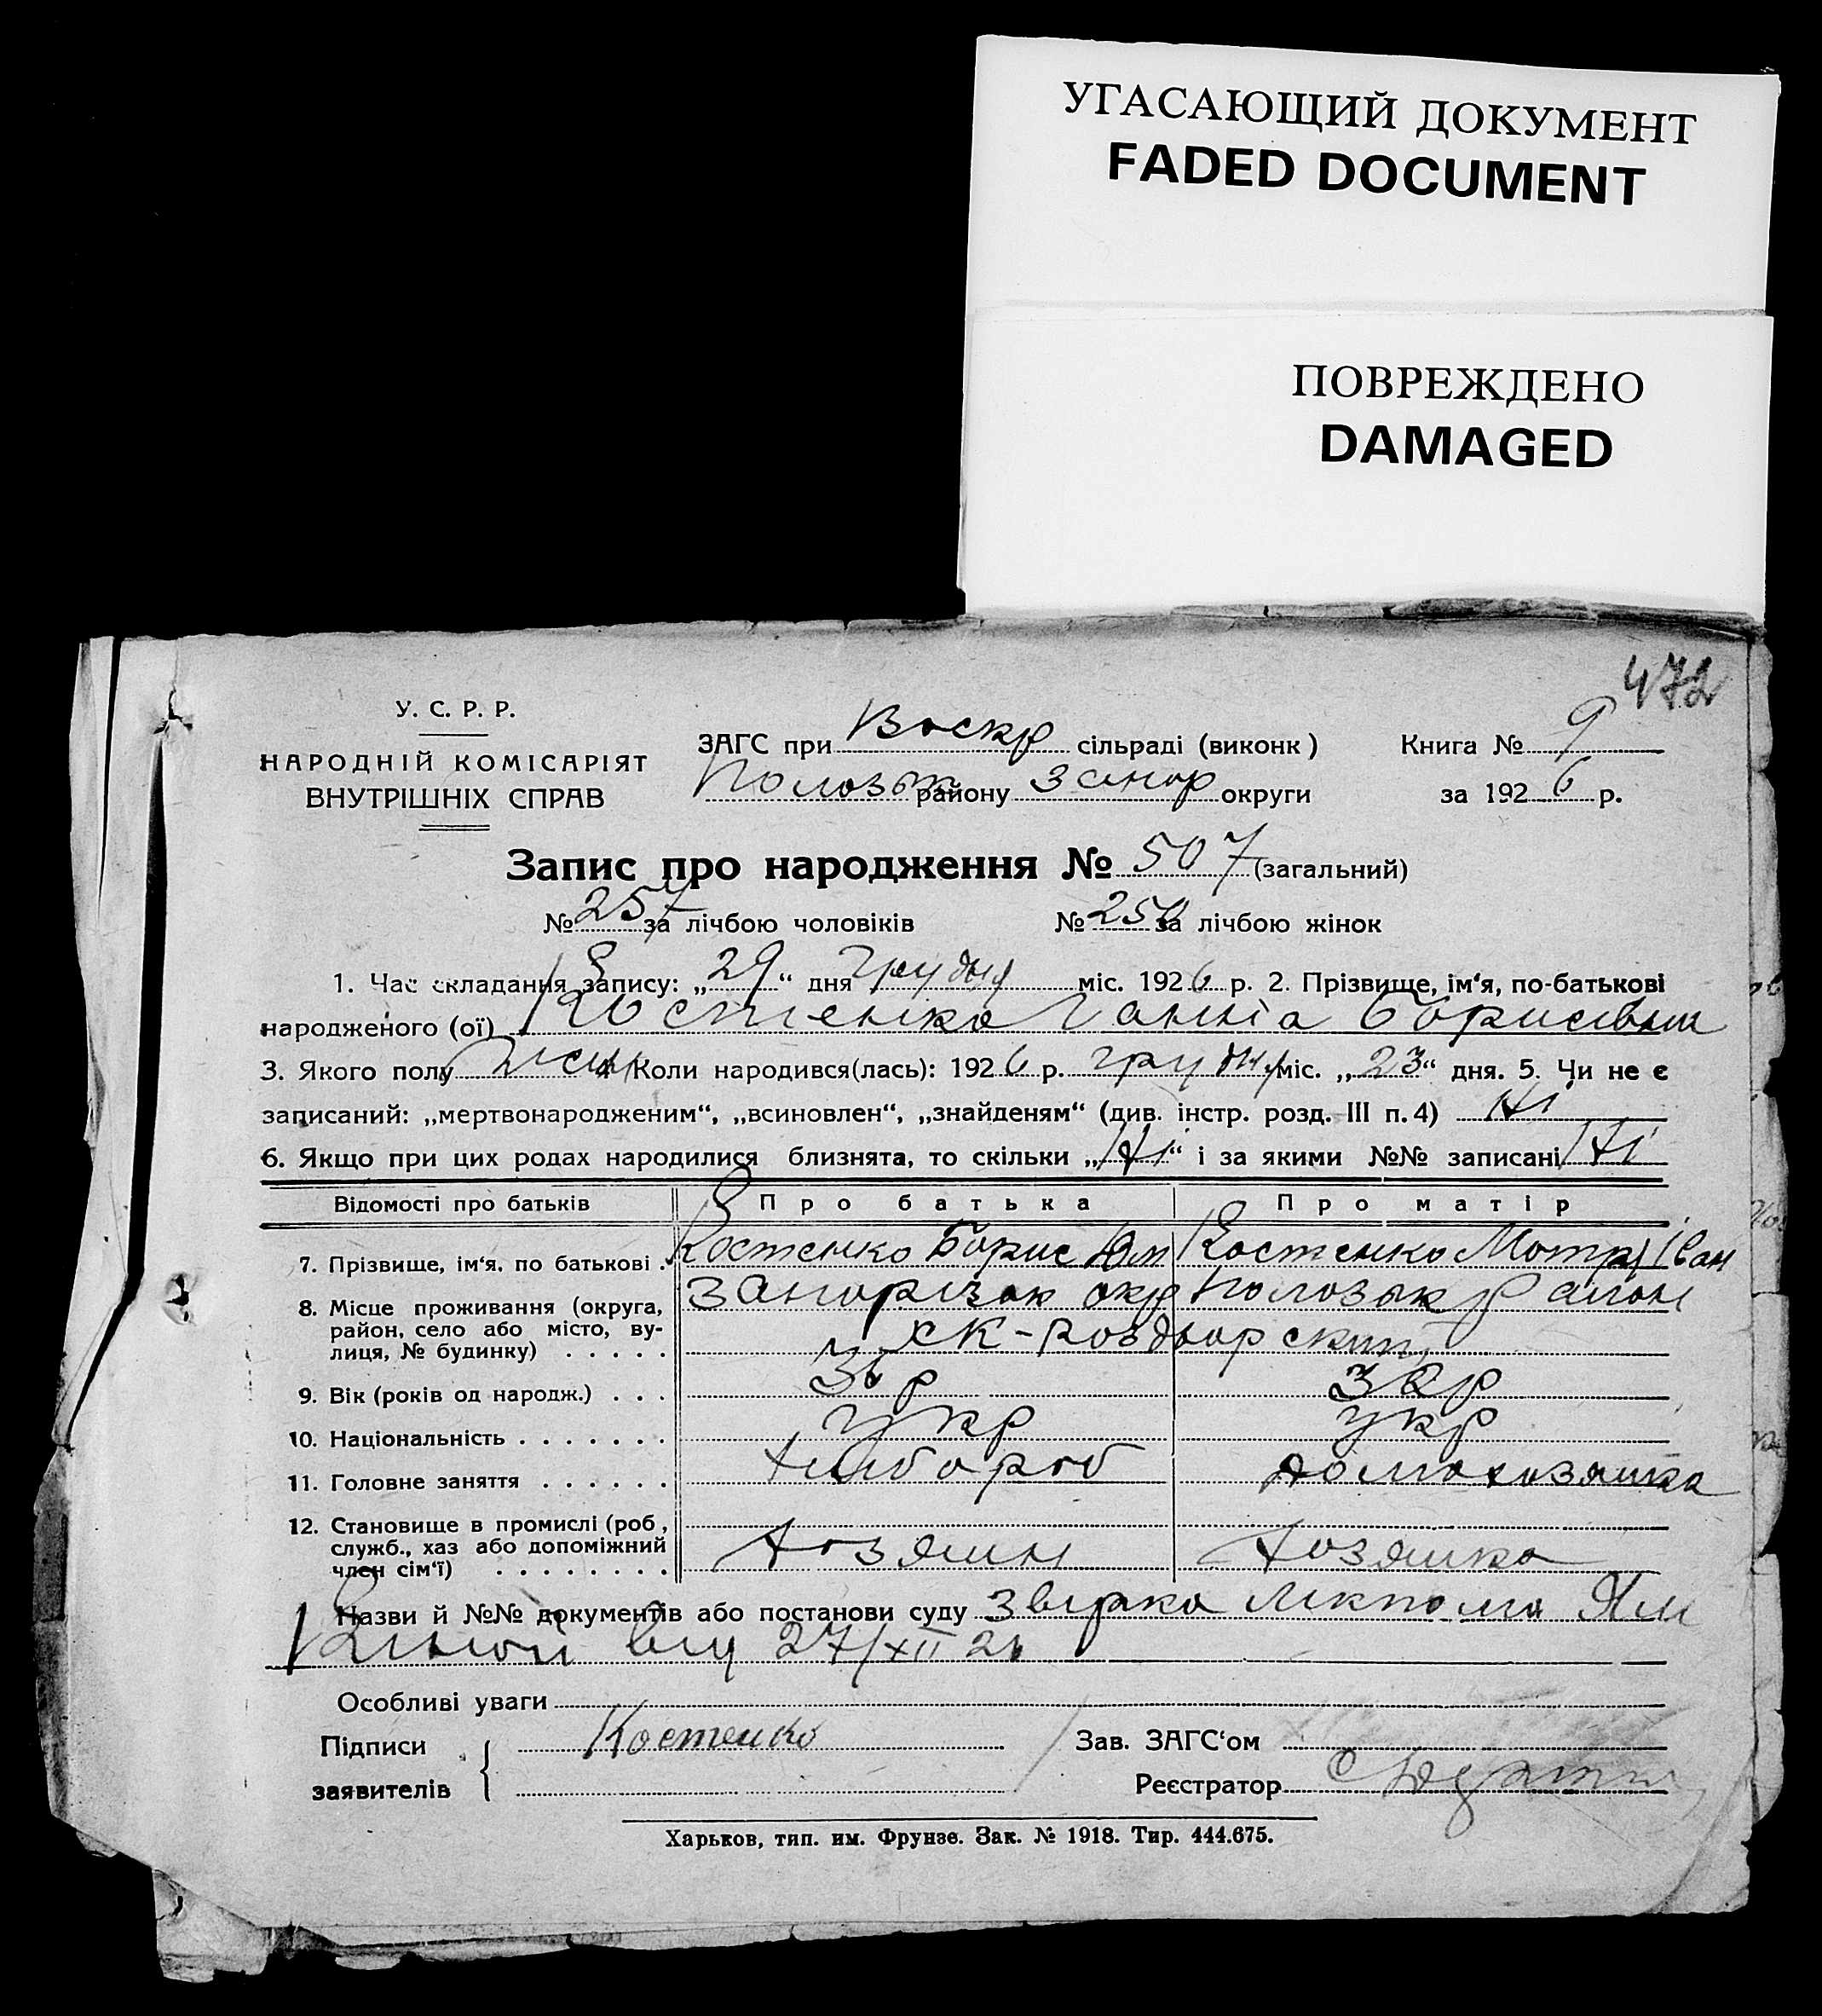 УГАСАЮЩИЙ ДОКУМЕНТ
FADED DOCUMENT
ПОВРЕЖДЕНО
DAMAGED
472
У. С. Р. Р.
НАРОДНІЙ КОМІСАРІЯТ
ВНУТРІШНІХ СПРАВ
ЗАГС при Воскр сільраді (виконк) Книга № 9
Полозьк району Запор округи за 1926 р.
Запис про народження № 507 (загальний)
№ 257 за лічбою чоловіків № 250 за лічбою жінок
1. Час складання запису: „29“ дня грудня міс. 1926 р. 2. Прізвище, ім‘я, по-батькові
народженого (ої) Костенко Ганна Борисівна
3. Якого полу жін 4 Коли народився(лась): 1926 р. грудня міс. „23“ дня. 5. Чи не є
записаний: „мертвонародженим“, „всиновлен“, „знайденям“ (див. інстр. розд. III п. 4) Ні
6. Якщо при цих родах народилися близнята, то скільки „Ні“ і за якими №№ записані Ні
Відомості про батьків Про батька Про матір
7. Прізвище, ім‘я, по батькові . Костенко Борис Костенко Мотря Іван
8. Місце проживання (округа, Запорізьк окр Полозьк район
район, село або місто, ву-
лиця, № будинку) . . . . .
9. Вік (років од народж.) . . . 36 р 32 р
10. Національність . . . . . . . укр укр
11. Головне заняття . . . . . . Хлібороб домохозяйка
12. Становище в промислі (роб,
служб., хаз або допоміжний Хозяин Хозяйка
член сім‘ї) . . . . . . . .
Назви й №№ документів або постанови суду
від 27/XII 26
Особливі уваги
Підписи Костенко Зав. ЗАГС‘ом
заявителів Реєстратор
Харьков, тип. им. Фрунзе. Зак. № 1918. Тир. 444.675.